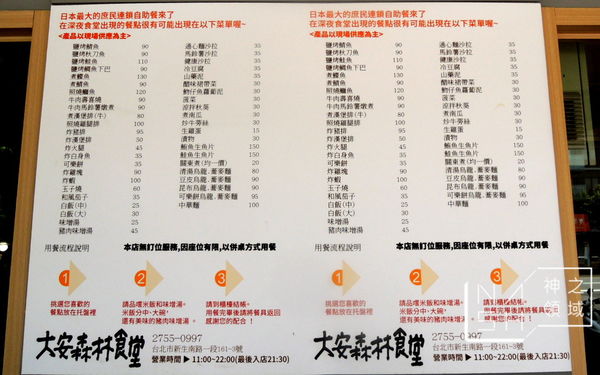 日本最大的庶民連鎖自助餐來了
在深夜食堂出現的餐點很有可能出現在以下菜單喔~
<產品以現場供應為主>
鹽烤鯖魚 90
鹽烤秋刀魚 90
鹽烤鮭魚 110
鹽烤鯛魚下巴 90
煮鰈魚 90
煮鯖魚 90
照燒鱸魚 90
牛肉壽喜燒 90
牛肉馬鈴薯燉煮 90
煮漢堡排(牛) 80
照燒雞腿排 100
炸豬排 95
炸漢堡排 50
炸火腿 45
炸白身魚 35
可樂餅 35
炸雞塊 90
炸蝦 90
玉子燒 60
和風茄子 35
白飯(中) 25
白飯(大) 30
味增湯 25
豬肉味增湯 50
通心麵沙拉 35
馬鈴薯沙拉 35
健康沙拉 35
冷豆腐 35
山藥泥 35
醋味裙帶菜 35
魩仔魚蘿蔔泥 35
菠菜 35
涼拌秋葵 35
煮南瓜 35
炒牛蒡絲 35
生雞蛋 15
漬物 30
鮪魚生魚片 150
鮭魚生魚片 150
關東煮(均一價) 20
清湯烏龍.蕎麥麵 60
豆皮烏龍.蕎麥麵 80
昆布烏龍.蕎麥麵 90
可樂餅烏龍.蕎麥麵 95
中華麵 100
用餐流程說明
本店無訂位服務,因座位有限,以併桌方式用餐
1
2
3
挑選您喜歡的
餐點放在托盤裡
請品嚐米飯和味增湯。
米飯分中、大碗。
還有美味的豬肉味增湯
請到櫃檯結帳。
用餐完畢後請將餐具返回
感謝您的配合!
大安森林食堂
2755-0997
台北市新生南路一段161-3號
營業時間▶11:00~22:00(最後入店21:30)
日本最大的庶民連鎖自助餐來了
在深夜食堂出現的餐點很有可能出現在以下菜單喔~
<產品以現場供應為主>
鹽烤鯖魚 90
鹽烤秋刀魚 90
鹽烤鮭魚 110
鹽烤鯛魚下巴 90
煮鰈魚 90
煮鯖魚 90
照燒鱸魚 90
牛肉壽喜燒 90
牛肉馬鈴薯燉煮 90
煮漢堡排(牛) 80
照燒雞腿排 100
炸豬排 95
炸漢堡排 50
炸火腿 45
炸白身魚 35
可樂餅 35
炸雞塊 90
炸蝦 90
玉子燒 60
和風茄子 35
白飯(中) 25
白飯(大) 30
味增湯 25
豬肉味增湯 50
通心麵沙拉 35
馬鈴薯沙拉 35
健康沙拉 35
冷豆腐 35
山藥泥 35
醋味裙帶菜 35
魩仔魚蘿蔔泥 35
菠菜 35
涼拌秋葵 35
煮南瓜 35
炒牛蒡絲 35
生雞蛋 15
漬物 30
鮪魚生魚片 150
鮭魚生魚片 150
關東煮(均一價) 20
清湯烏龍.蕎麥麵 60
豆皮烏龍.蕎麥麵 80
昆布烏龍.蕎麥麵 90
可樂餅烏龍.蕎麥麵 95
中華麵 100
用餐流程說明
本店無訂位服務,因座位有限,以併桌方式用餐
1
2
3
挑選您喜歡的
餐點放在托盤裡
請品嚐米飯和味增湯。
米飯分中、大碗。
還有美味的豬肉味增湯
請到櫃檯結帳。
用餐完畢後請將餐具
感謝您的配合!
大安森林食堂
2755-0997
台北市新生南路一段161-3號
營業時間▶11:00~22:00(最後入店21:30)
神之領域